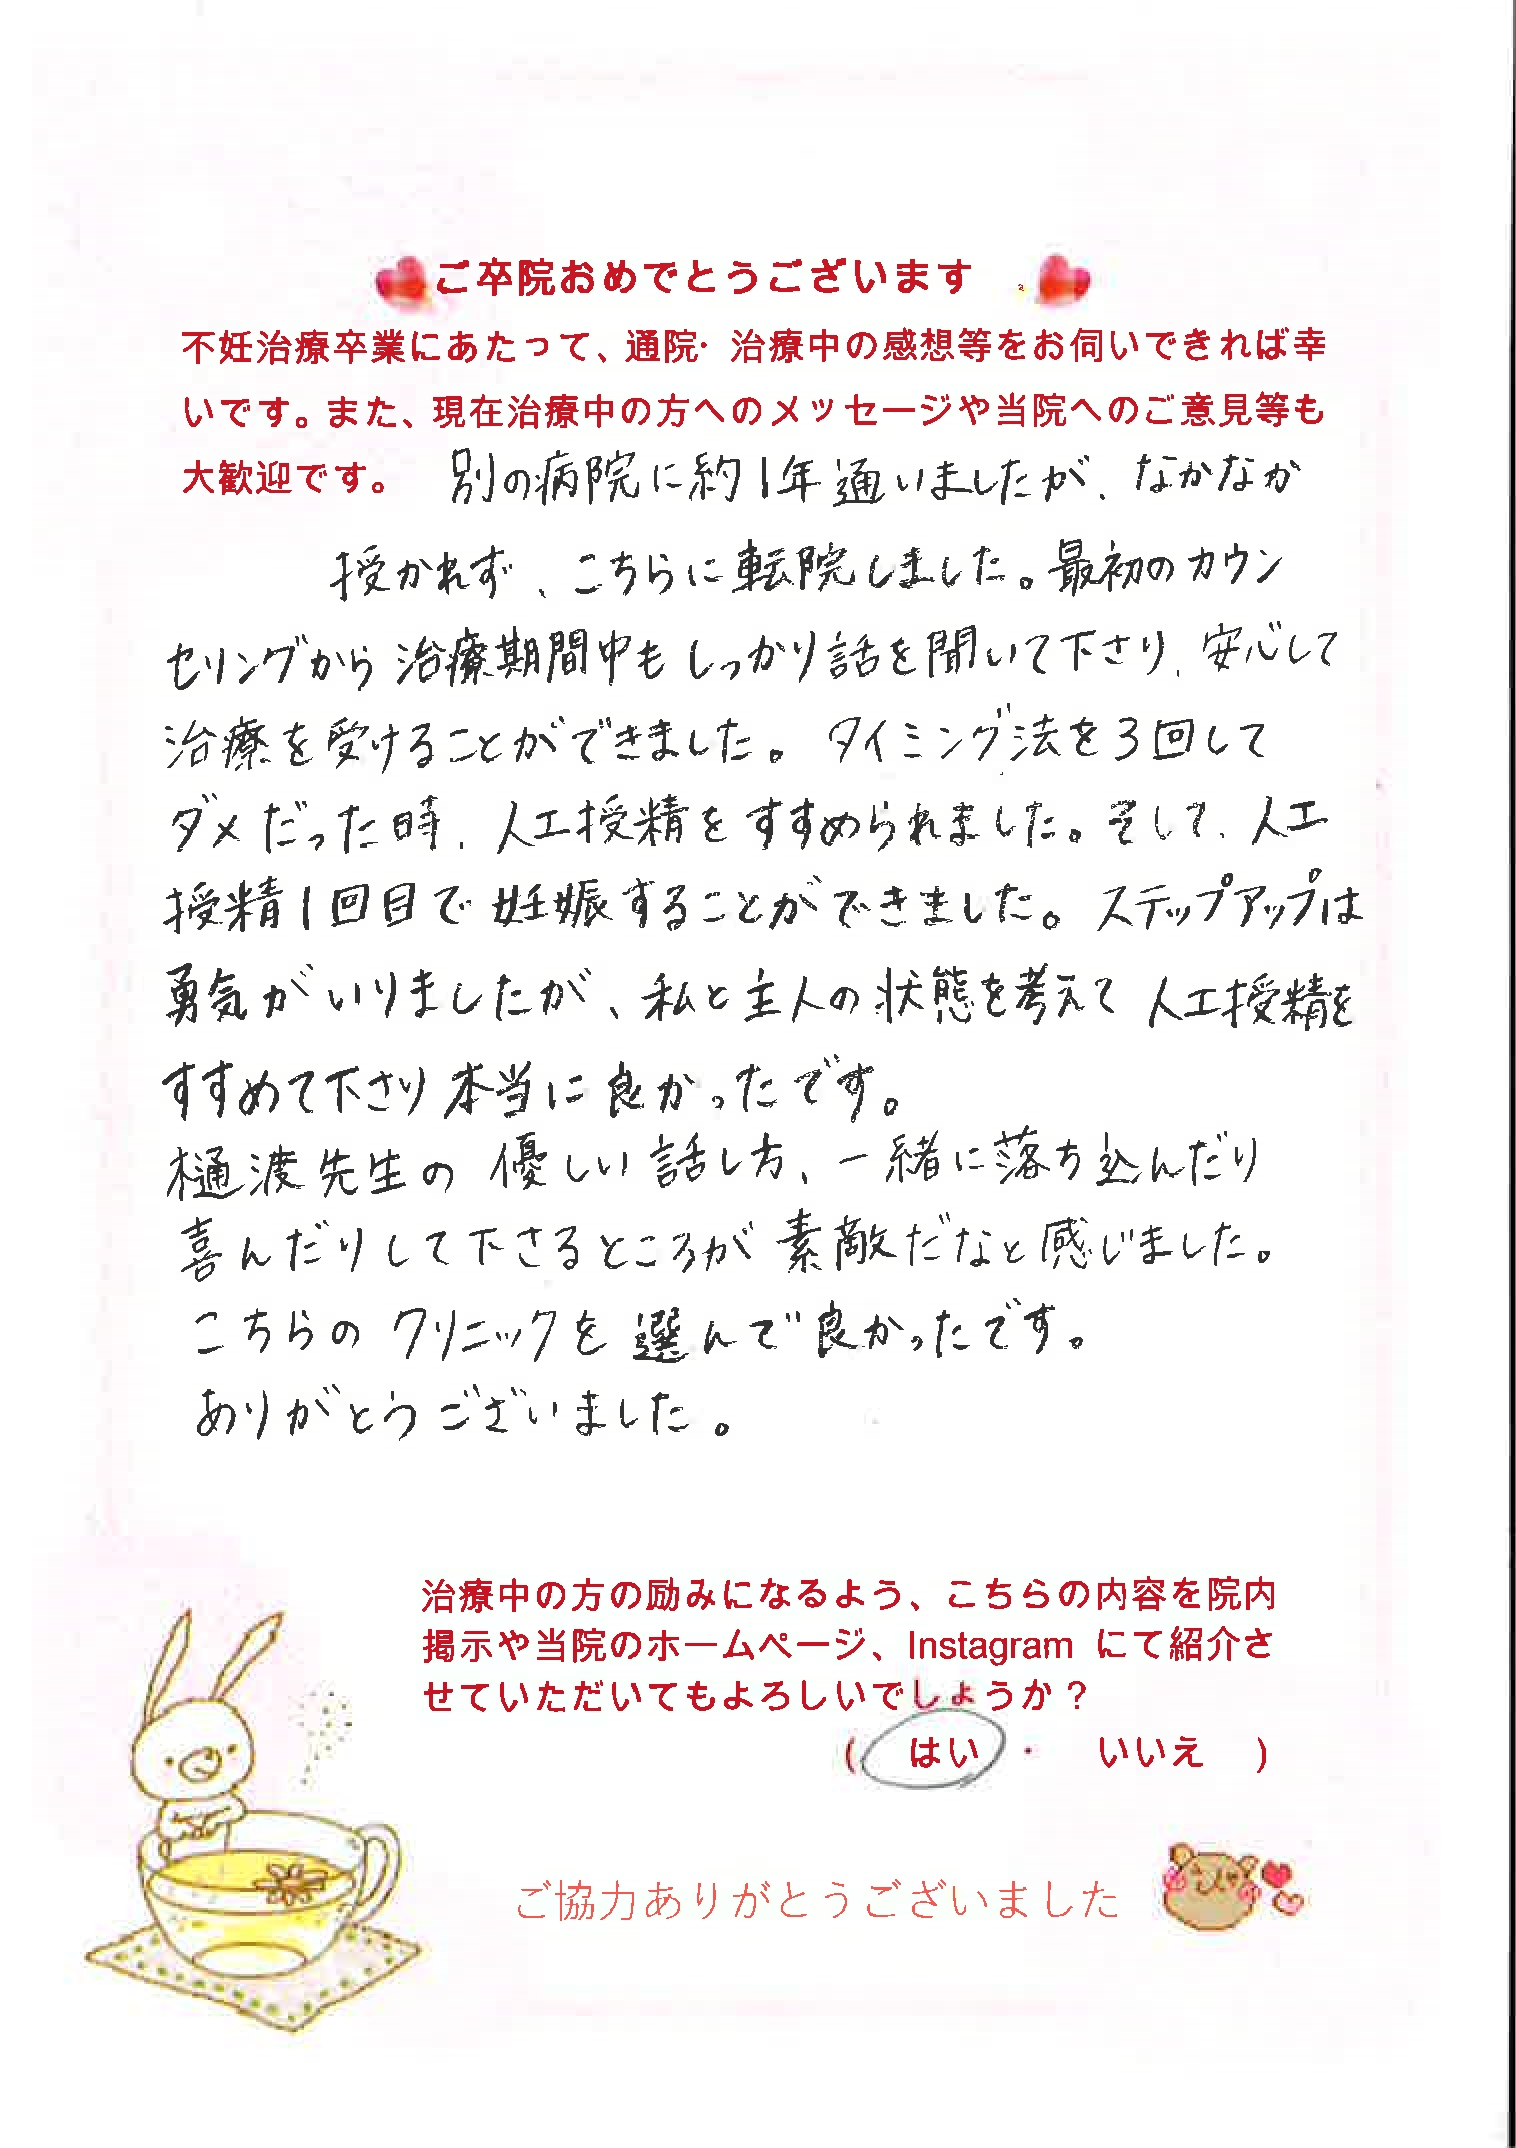 ご卒院おめでとうございます
不妊治療卒業にあたって、通院・治療中の感想等をお伺いできれば幸
いです。また、現在治療中の方へのメッセージや当院へのご意見等も
大歓迎です。 別の病院に約1年通いましたが、なかなか
授かれず、こちらに転院しました。最初のカウン
セリングから治療期間中もしっかり話を聞いて下さり、安心して
治療を受けることができました。タイミング法を3回して
ダメだった時、人工授精をすすめられました。そして、人工
授精1回目で妊娠することができました。ステップアップは
勇気がいりましたが、私と主人の状態を考えて人工授精を
すすめて下さり本当に良かったです。
樋渡先生の優しい話し方、一緒に落ち込んだり
喜んだりして下さるところが素敵だなと感じました。
こちらのクリニックを選んで良かったです。
ありがとうございました。
治療中の方の励みになるよう、こちらの内容を院内
掲示や当院のホームページ、Instagram にて紹介さ
せていただいてもよろしいでしょうか？
( はい ・ いいえ )
ご協力ありがとうございました